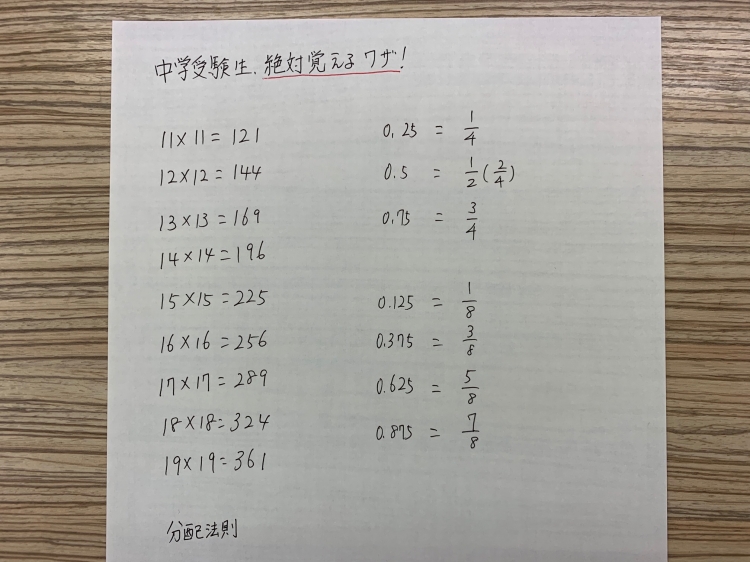 中学受験生、絶対覚えるワザ!
11×11=121
12×12=144
13×13=169
14×14=196
15×15=225
16×16=256
17×17=289
18×18=324
19×19=361
0.25 = 1/4
0.5 = 1/2 (2/4)
0.75 = 3/4
0.125 = 1/8
0.375 = 3/8
0.625 = 5/8
0.875 = 7/8
分配法則